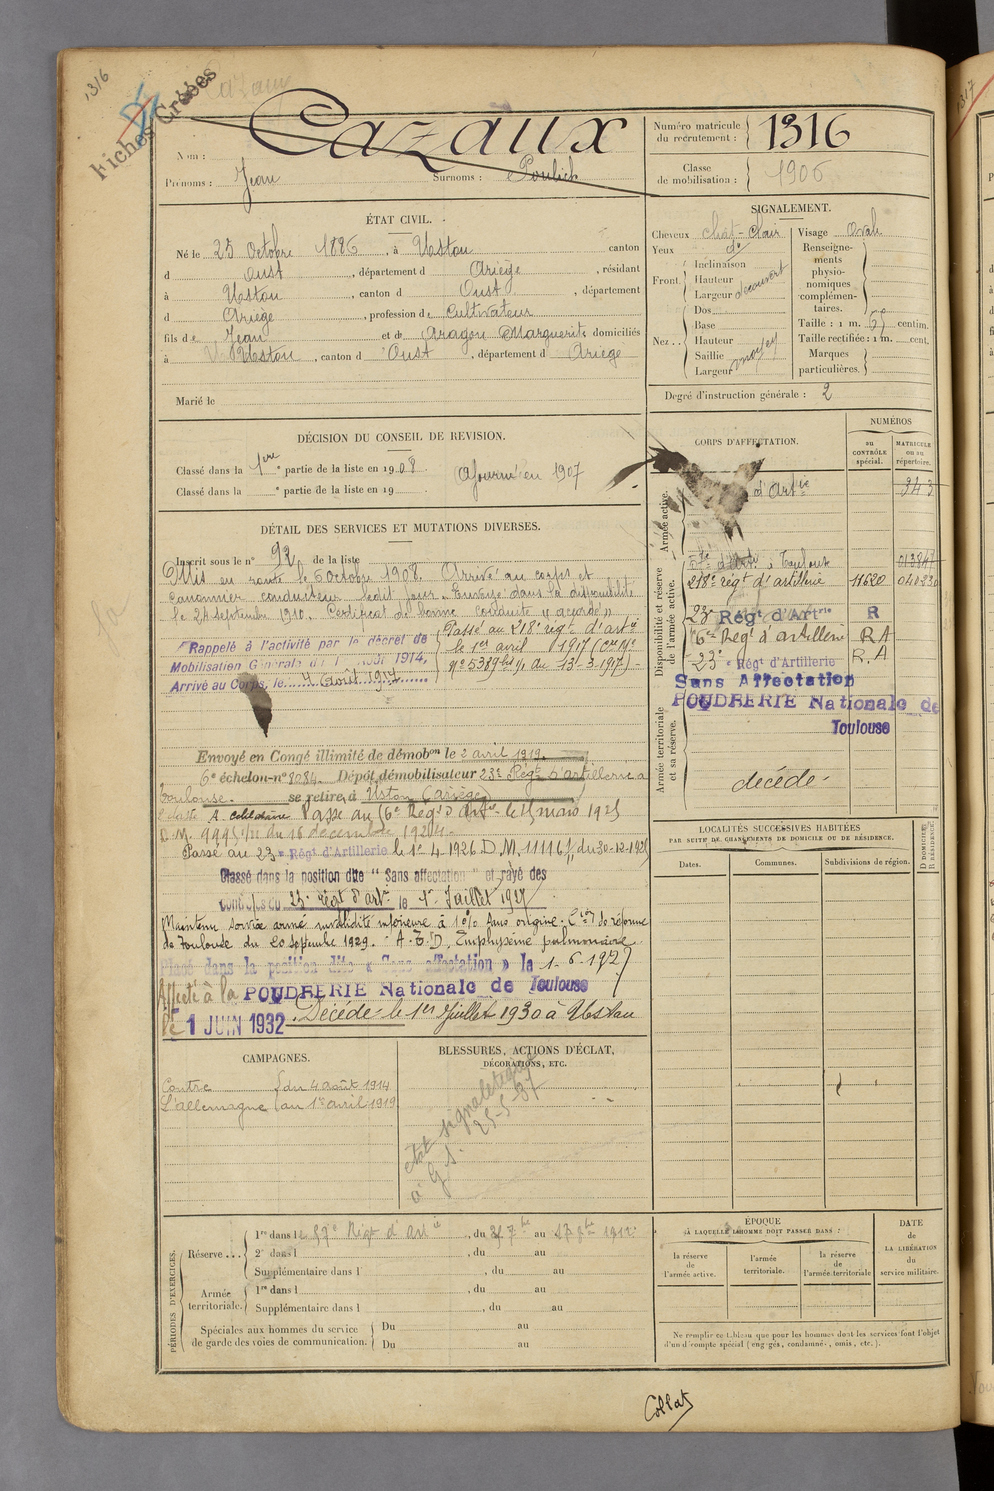 1316
Fiches Créées
Cazaux
Nom :
Prénoms : Jean Surnoms : Poulich
Numéro matricule du recrutement : 1316
Classe de mobilisation : 1906
ÉTAT CIVIL.
Né le 25 Octobre 1886, à Ustou canton
d Oust, département d Ariège, résidant
à Ustou, canton d Oust, département
d Ariège, profession de Cultivateur
fils de Jean et de Aragou Marguerite domiciliés
à Ustou, canton d Oust, département d Ariège
Marié le
SIGNALEMENT.
Cheveux chât-Clair
Yeux do
Front. Inclinaison
Hauteur
Largeur découvert
Nez.. Dos
Base
Hauteur
Saillie
Largeur moyen
Visage Ovale
Renseignements physionomiques complémentaires.
Taille : 1 m. centim.
Taille rectifiée : 1 m. cent.
Marques particulières.
Degré d'instruction générale : 2
DÉCISION DU CONSEIL DE REVISION.
Classé dans la 1ère partie de la liste en 1908. Ajourné en 1907
Classé dans la e partie de la liste en 19
DÉTAIL DES SERVICES ET MUTATIONS DIVERSES.
Inscrit sous le n° 92 de la liste
Mis en route le 6 octobre 1908. Arrivé au corps et
canonnier conducteur ledit jour. Envoyé dans la disponibilité
le 24 septembre 1910. Certificat de bonne conduite "accordé"
Rappelé à l'activité par le décret de
Mobilisation Générale du 1 Août 1914,
Arrivé au Corps, le 4 Août 1914
Passé au 218e régt d'artie
le 1er avril 1917 (Cre Mle
N° 5389 bis/11 du 13-3-1917)
Envoyé en Congé illimité de démobon le 2 avril 1919
6e échelon-n° 8084. Dépôt démobilisateur 23e Régt d'artillerie à
Toulouse. se retire à Ustou (Ariège)
Passé au 16e Régt d'Artie le 15 mars 1925
D.M. du 16 décembre 1924
Passé au 23e Régt d'Artillerie le 1er 4-1926 D.M. 11116 du 30-12-1925
Classé dans la position dite "Sans affectation" et rayé des
contrôles du 23e régt d'artie le 1er Juillet 1927
Maintenu service armé invalidité inférieure à 10% sans origine. Con de réforme
de Toulouse du 20 septembre 1929. Emphysème pulmonaire
Placé dans la position dite « Sans affectation » le 1-6-1927
Affecté à la POUDRERIE Nationale de Toulouse
Le 1 JUIN 1932. Décédé le 1er Juillet 1930 à Ustou
CORPS D'AFFECTATION.
NUMÉROS
au CONTRÔLE spécial.
MATRICULE ou au répertoire.
Armée active.
d'Artie 343
Disponibilité et réserve de l'armée active.
d'Artie à Toulouse 013847
218e régt d'artillerie 11620
23e Régt d'Artrie R
16e Régt d'artillerie R A
23e Régt d'Artillerie R.A
Sans Affectation
POUDRERIE Nationale de
Toulouse
Armée territoriale et sa réserve.
décédé.
LOCALITÉS SUCCESSIVES HABITÉES
PAR SUITE DE CHANGEMENTS DE DOMICILE OU DE RÉSIDENCE.
Dates. Communes. Subdivisions de région. D DOMICILE R RÉSIDENCE.
CAMPAGNES.
Contre du 4 août 1914
L'allemagne au 1er avril 1919
BLESSURES, ACTIONS D'ÉCLAT,
DÉCORATIONS, ETC.
état signalétique
25-5-37
PÉRIODES D'EXERCICES.
Réserve...
1re dans le 57e Régt d'Artie, du au 1912
2e dans l , du au
Supplémentaire dans l , du au
Armée territoriale.
1re dans l , du au
Supplémentaire dans l , du au
Spéciales aux hommes du service de garde des voies de communication.
Du au
Du au
ÉPOQUE
À LAQUELLE L'HOMME DOIT PASSER DANS :
la réserve de l'armée active.
l'armée territoriale.
la réserve de l'armée territoriale
DATE DE LA LIBÉRATION du service militaire.
Ne remplir ce tableau que pour les hommes dont les services font l'objet
d'un décompte spécial (engagés, condamnés, omis, etc.).
Collat
1317